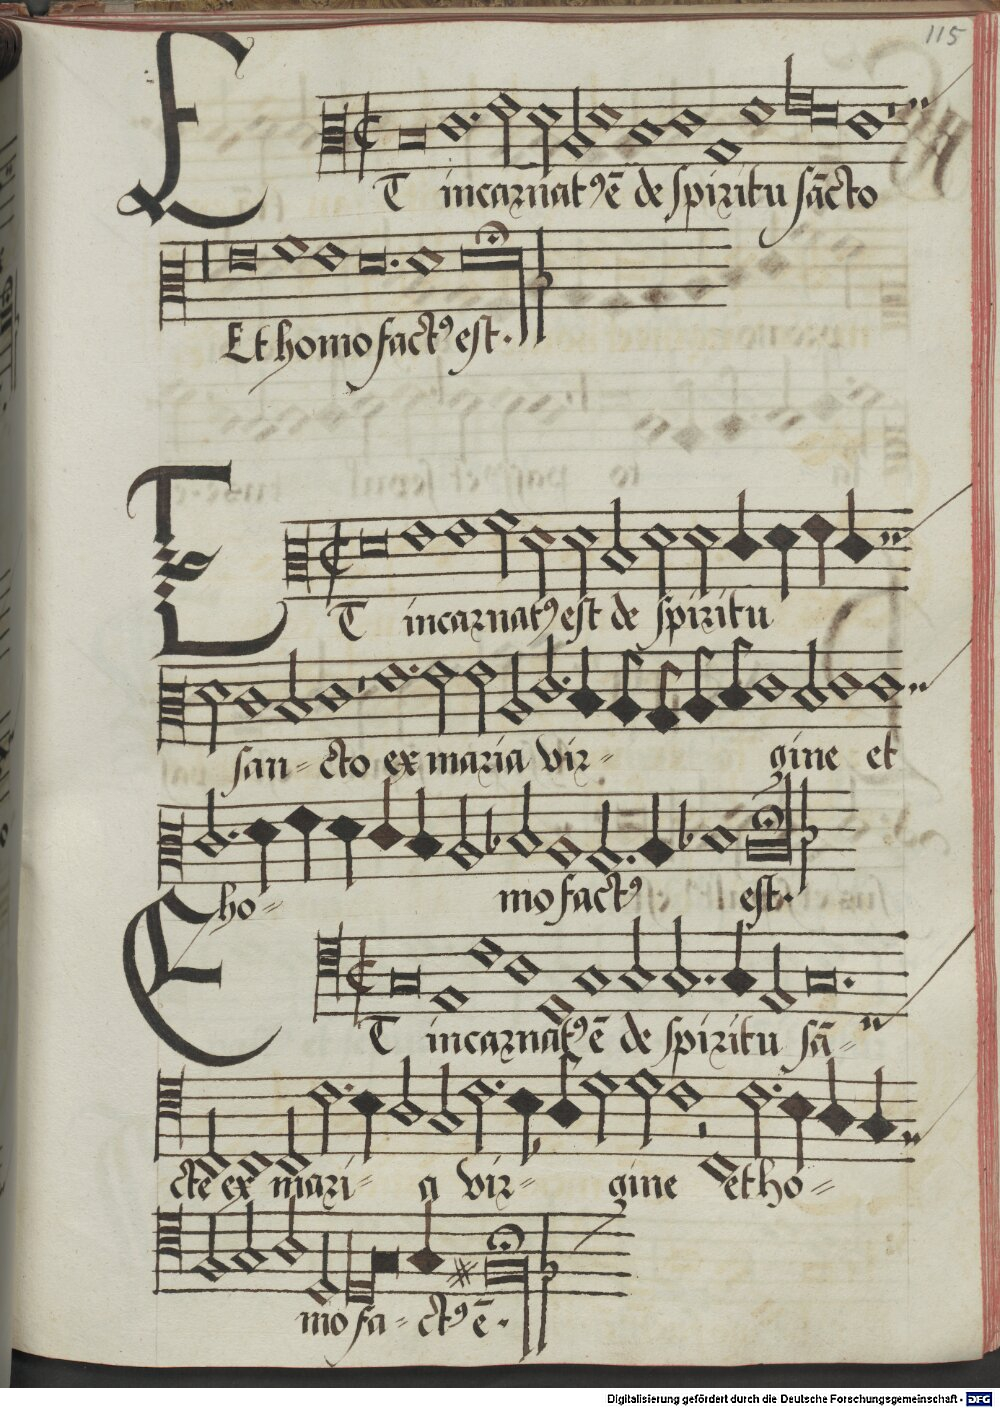 115
ET incarnatꝰ ē de spiritu sācto
Et homo factꝰ est.
ET incarnatꝰ est de spiritu
san- cto ex maria vir- gine et
ho- mo factꝰ est.
ET incarnatꝰ ē de spiritu sā-
cte ex mari- a vir- gine et ho-
mo fa- ctꝰ ē.
Digitalisierung gefördert durch die Deutsche Forschungsgemeinschaft - DFG